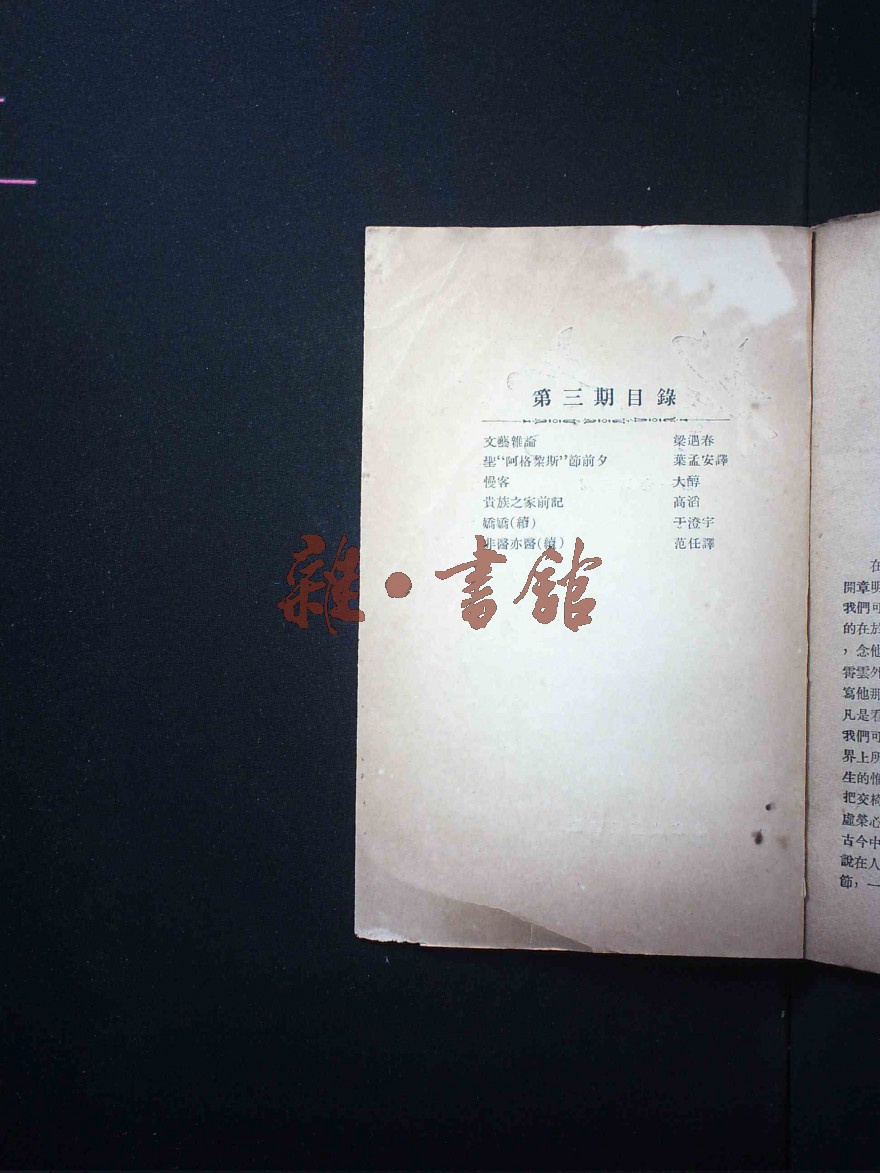 第三期目錄
文藝雜論 梁遇春
聖“阿格黎斯”節前夕 葉孟安譯
慢客 大醇
貴族之家前記 高滔
嬌嬌(續) 于澄宇
非醫亦醫(續) 范任譯
雜·書館
在
開章明
我們可
的在於
，念他
霄雲外
寫他那
凡是看
我們可
界上所
生的惟
把交椅
虛榮心
古今中
說在人
節，一